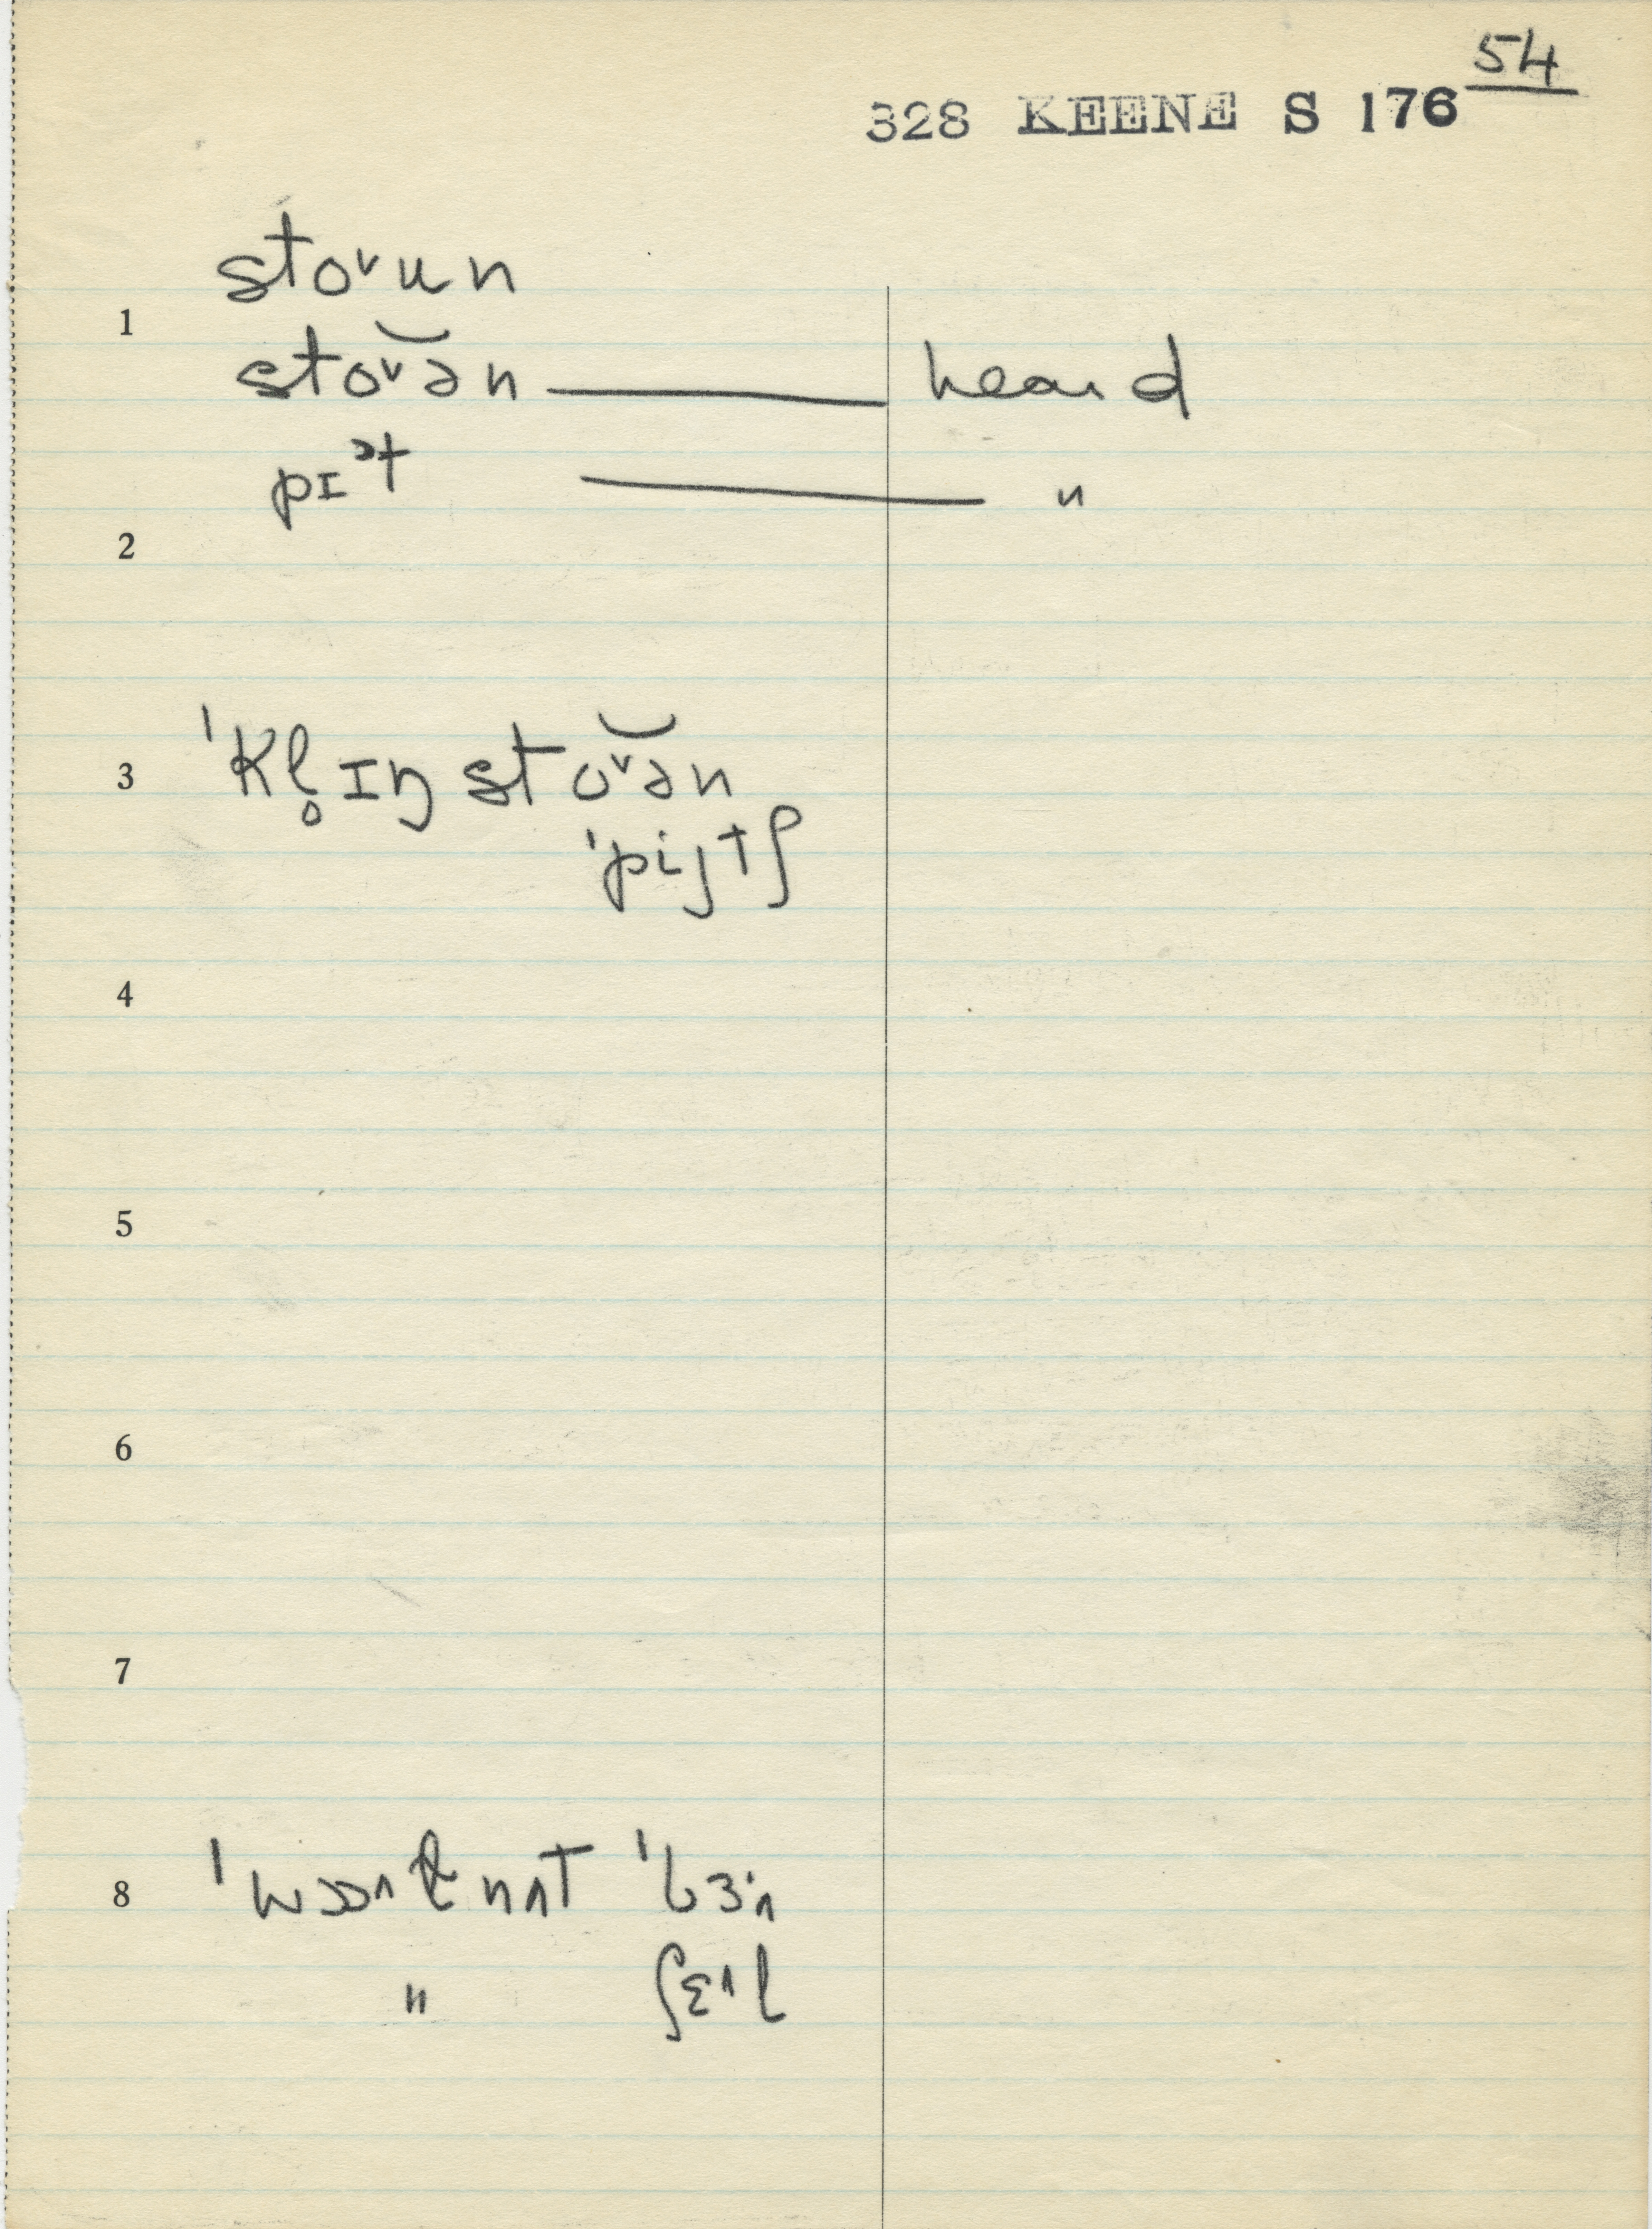 54
328 KEENE S 176
1 stoᵛun
stoᵛ͝ən — heard
pɪᵊt — "
2
3 ˈkl̥ɪŋ stoᵛ͝ən
ˈpijtʃ
4
5
6
7
8 nʌT
" ʃɛᶺl